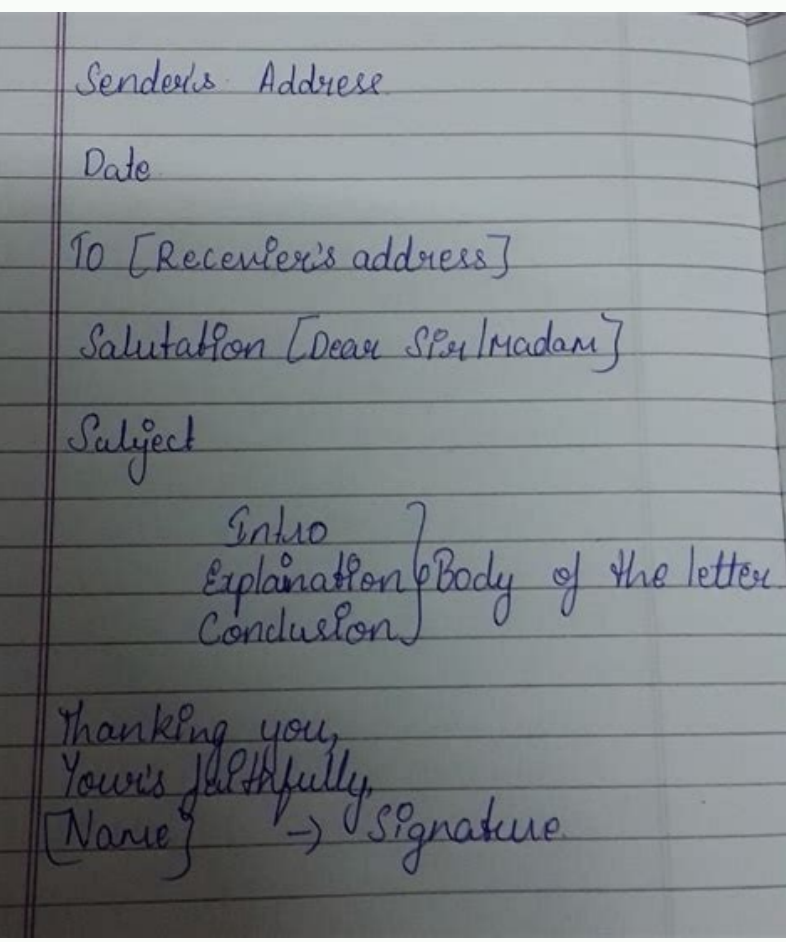 Sender's Address
Date
To [Recevier's address]
Salutation [Dear Sir/Madam]
Subject
Intro
Explaination
Body of the letter
Conclusion
Thanking you,
Your's faithfully,
[Name] → Signature